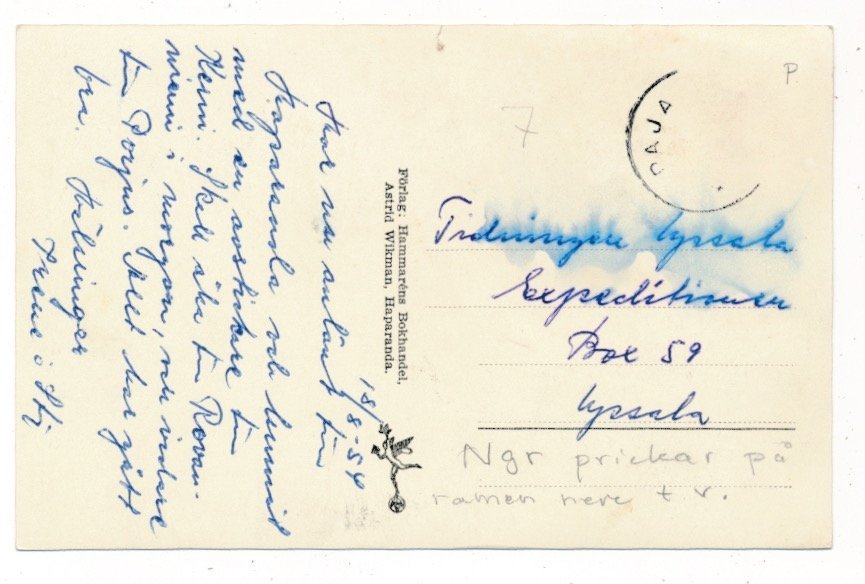 18/8-54
Har nu anlänt till
Haparanda och hunnit
med en avstickare till
Kemi. Skall åka till Rova-
niemi i morgon, sen vidare
till Porjus. Allt har gått
bra. Hälsningar
Irene o Stig
Förlag: Hammaréns Bokhandel,
Astrid Wikman, Haparanda.
P.
7
PAJA
Tidningen Upsala
Expeditionen
Box 59
Uppsala
Ngr prickar på
ramen nere t v.